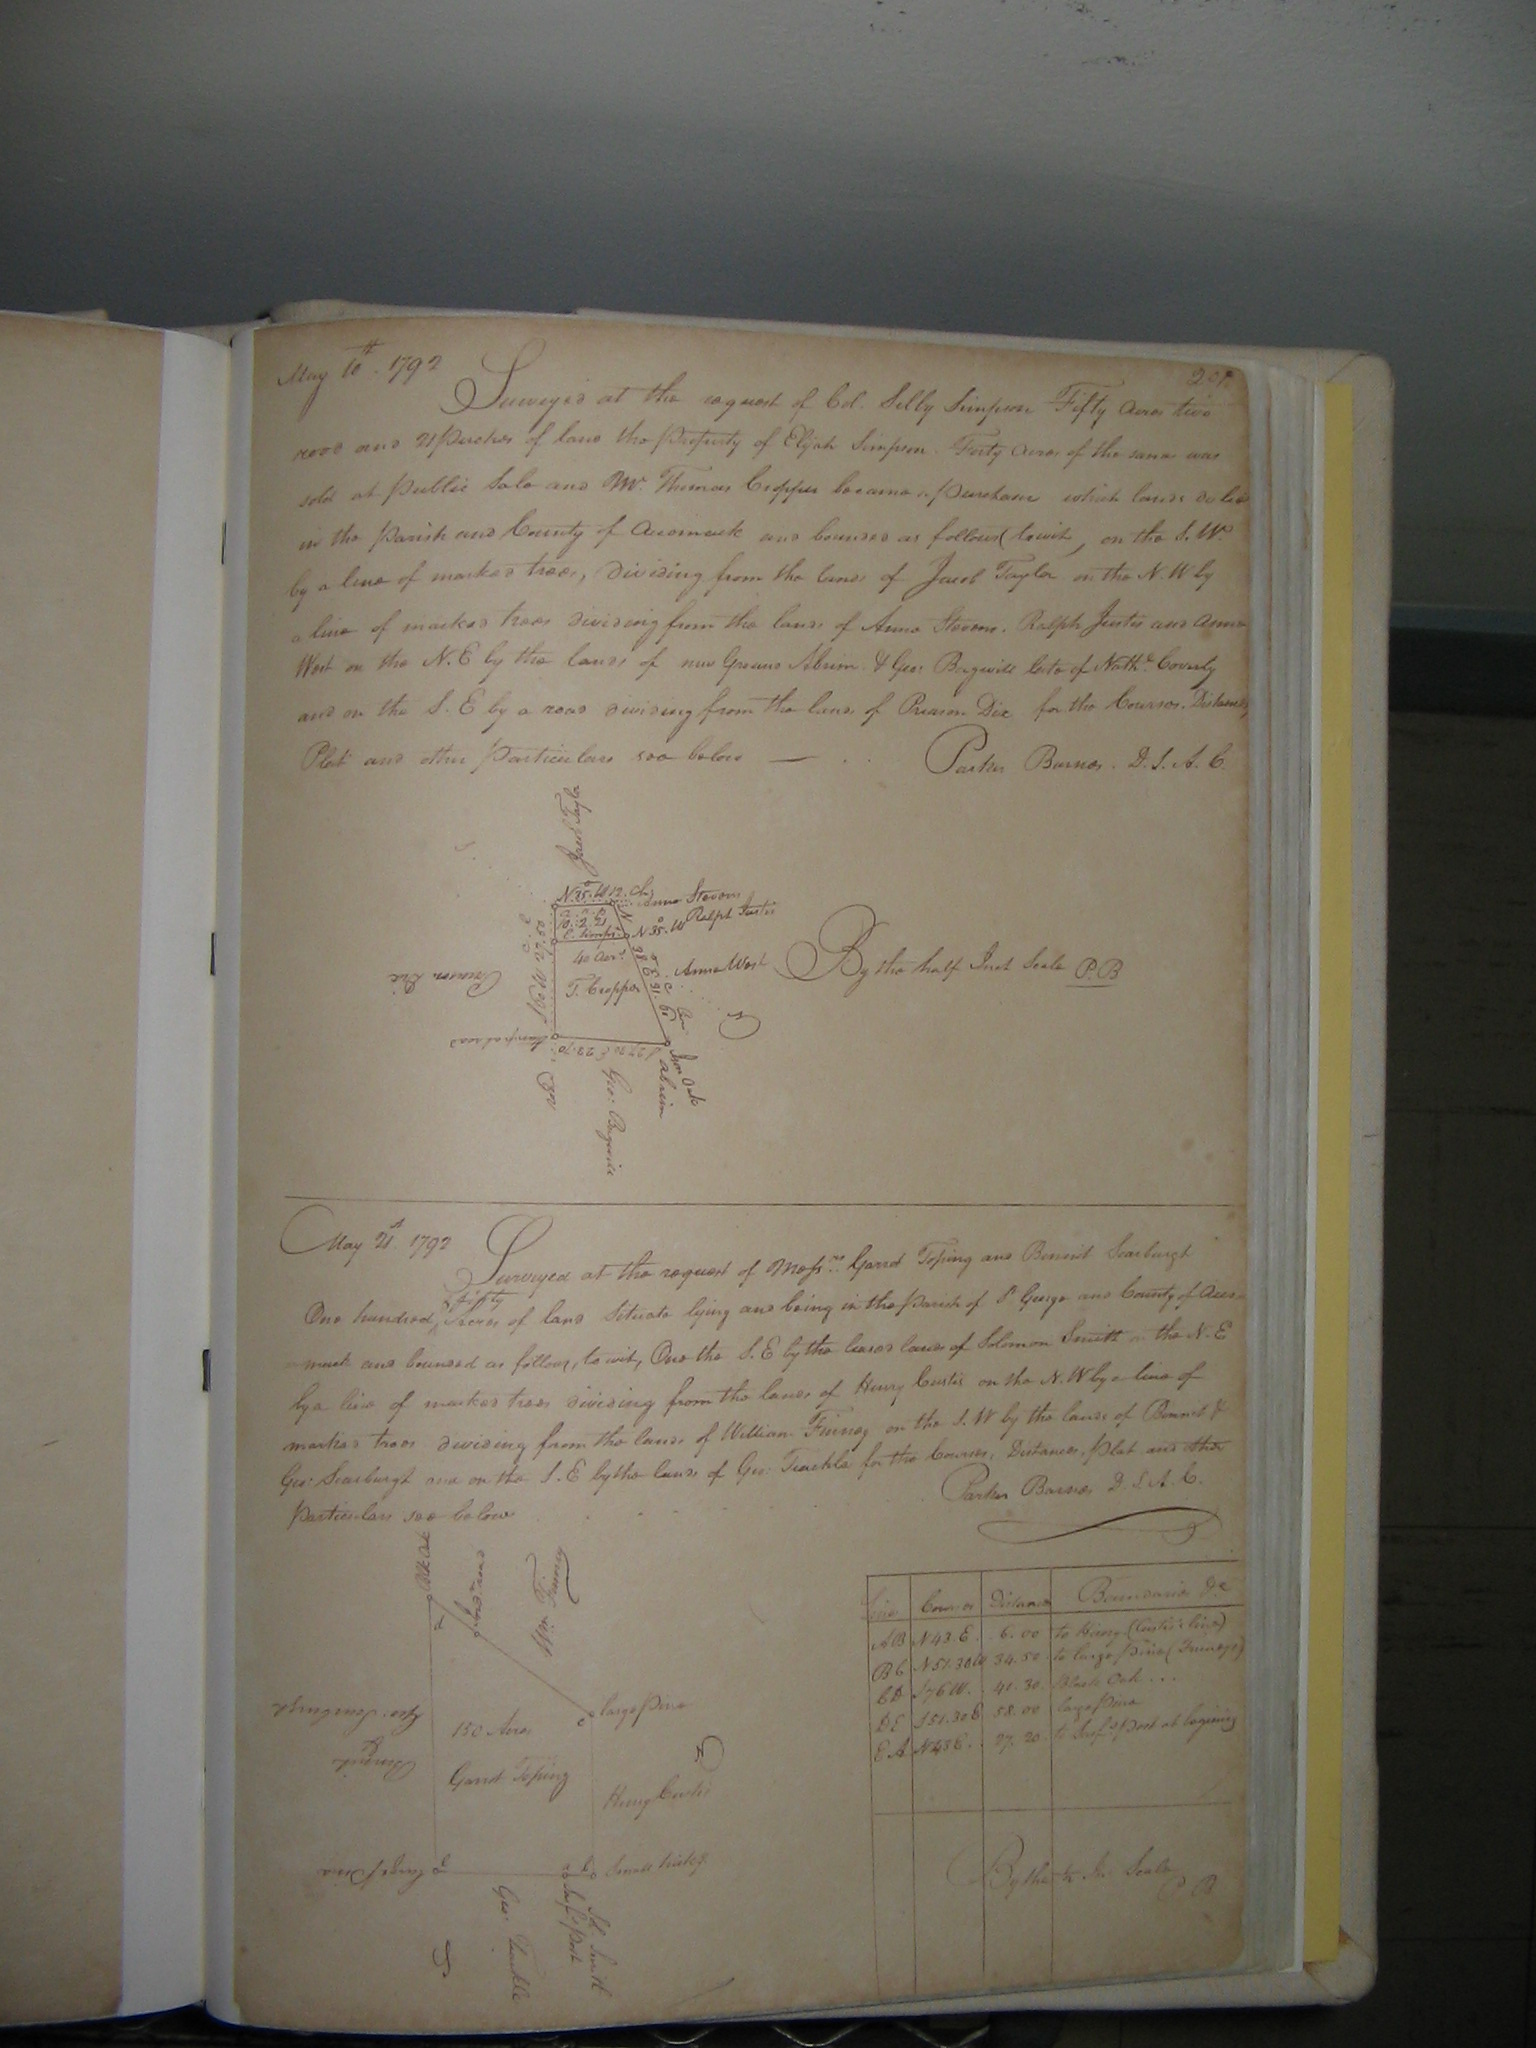 May 10th. 1792
Surveyed at the request of Col. Selby Simpson Fifty acres two
rood and 21 Perches of land the Property of Elijah Simpson. Forty acres of the same was
sold at Public Sale and Mr. Thomas Cropper became purchaser which lands do lie
in the Parish and County of Accomack and bounded as follows (towit, on the S.W.
by a line of marked trees, dividing from the lands of Jacob Taylor on the N.W by
a line of marked trees dividing from the lands of Anna Stevens. Ralph Justis and Anna
West on the N.E by the lands of Abrim & Geo: Bagwill late of County
and on the S.E by a road dividing from the lands of Preason Dix for the Courses. Distances,
Plat and other Particulars see below
Parker Barnes. D.S.A.C.
N.35.W 12. Ch
Anna Stevens
Ralph Justis
10. 2. 21
E. Simpsn
N 35. W
40 acrs.
Anna West
T. Cropper
Preason Dix
By the half Inch Scale P.B
road
Abrim
Geo: Bagwill
May 21st. 1792
Surveyed at the request of Messrs. Garret Toping and Bennit Scarburgh
fifty
One hundred acres of land Situate lying and being in the Parish of St. George and County of Acco-
-mack and bounded as follows, to wit, One the S.E by the leased lands of Solomon Smith on the N.E
by a line of marked trees dividing from the lands of Henry Custis on the N.W by a line of
marked trees dividing from the lands of William Finney on the S.W by the lands of Bennet &
Geo: Scarburgh and on the S.E by the lands of Geo: Teackle for the Courses, Distances, Plat and other
Particulars see below
Parker Barnes D.S.A.C.
Wm Finney
Line Courses Distance Boundaries &c
AB N43.E. 6.00 to Henry (Custis's line)
BC N51.30W 34.50 to large Pine (Finneys)
CD S76W. 41.30. Black Oak
DE S51.30E 58.00 large Pine
EA N43E. 27.20 to Post at begining
large Pine
Geo. Scarburgh
&
Bennit
150 Acres
Garret Toping
Henry Custis
large Pine
Sol. Smith
Post
Geo: Teackle
By the In. Scale
P B